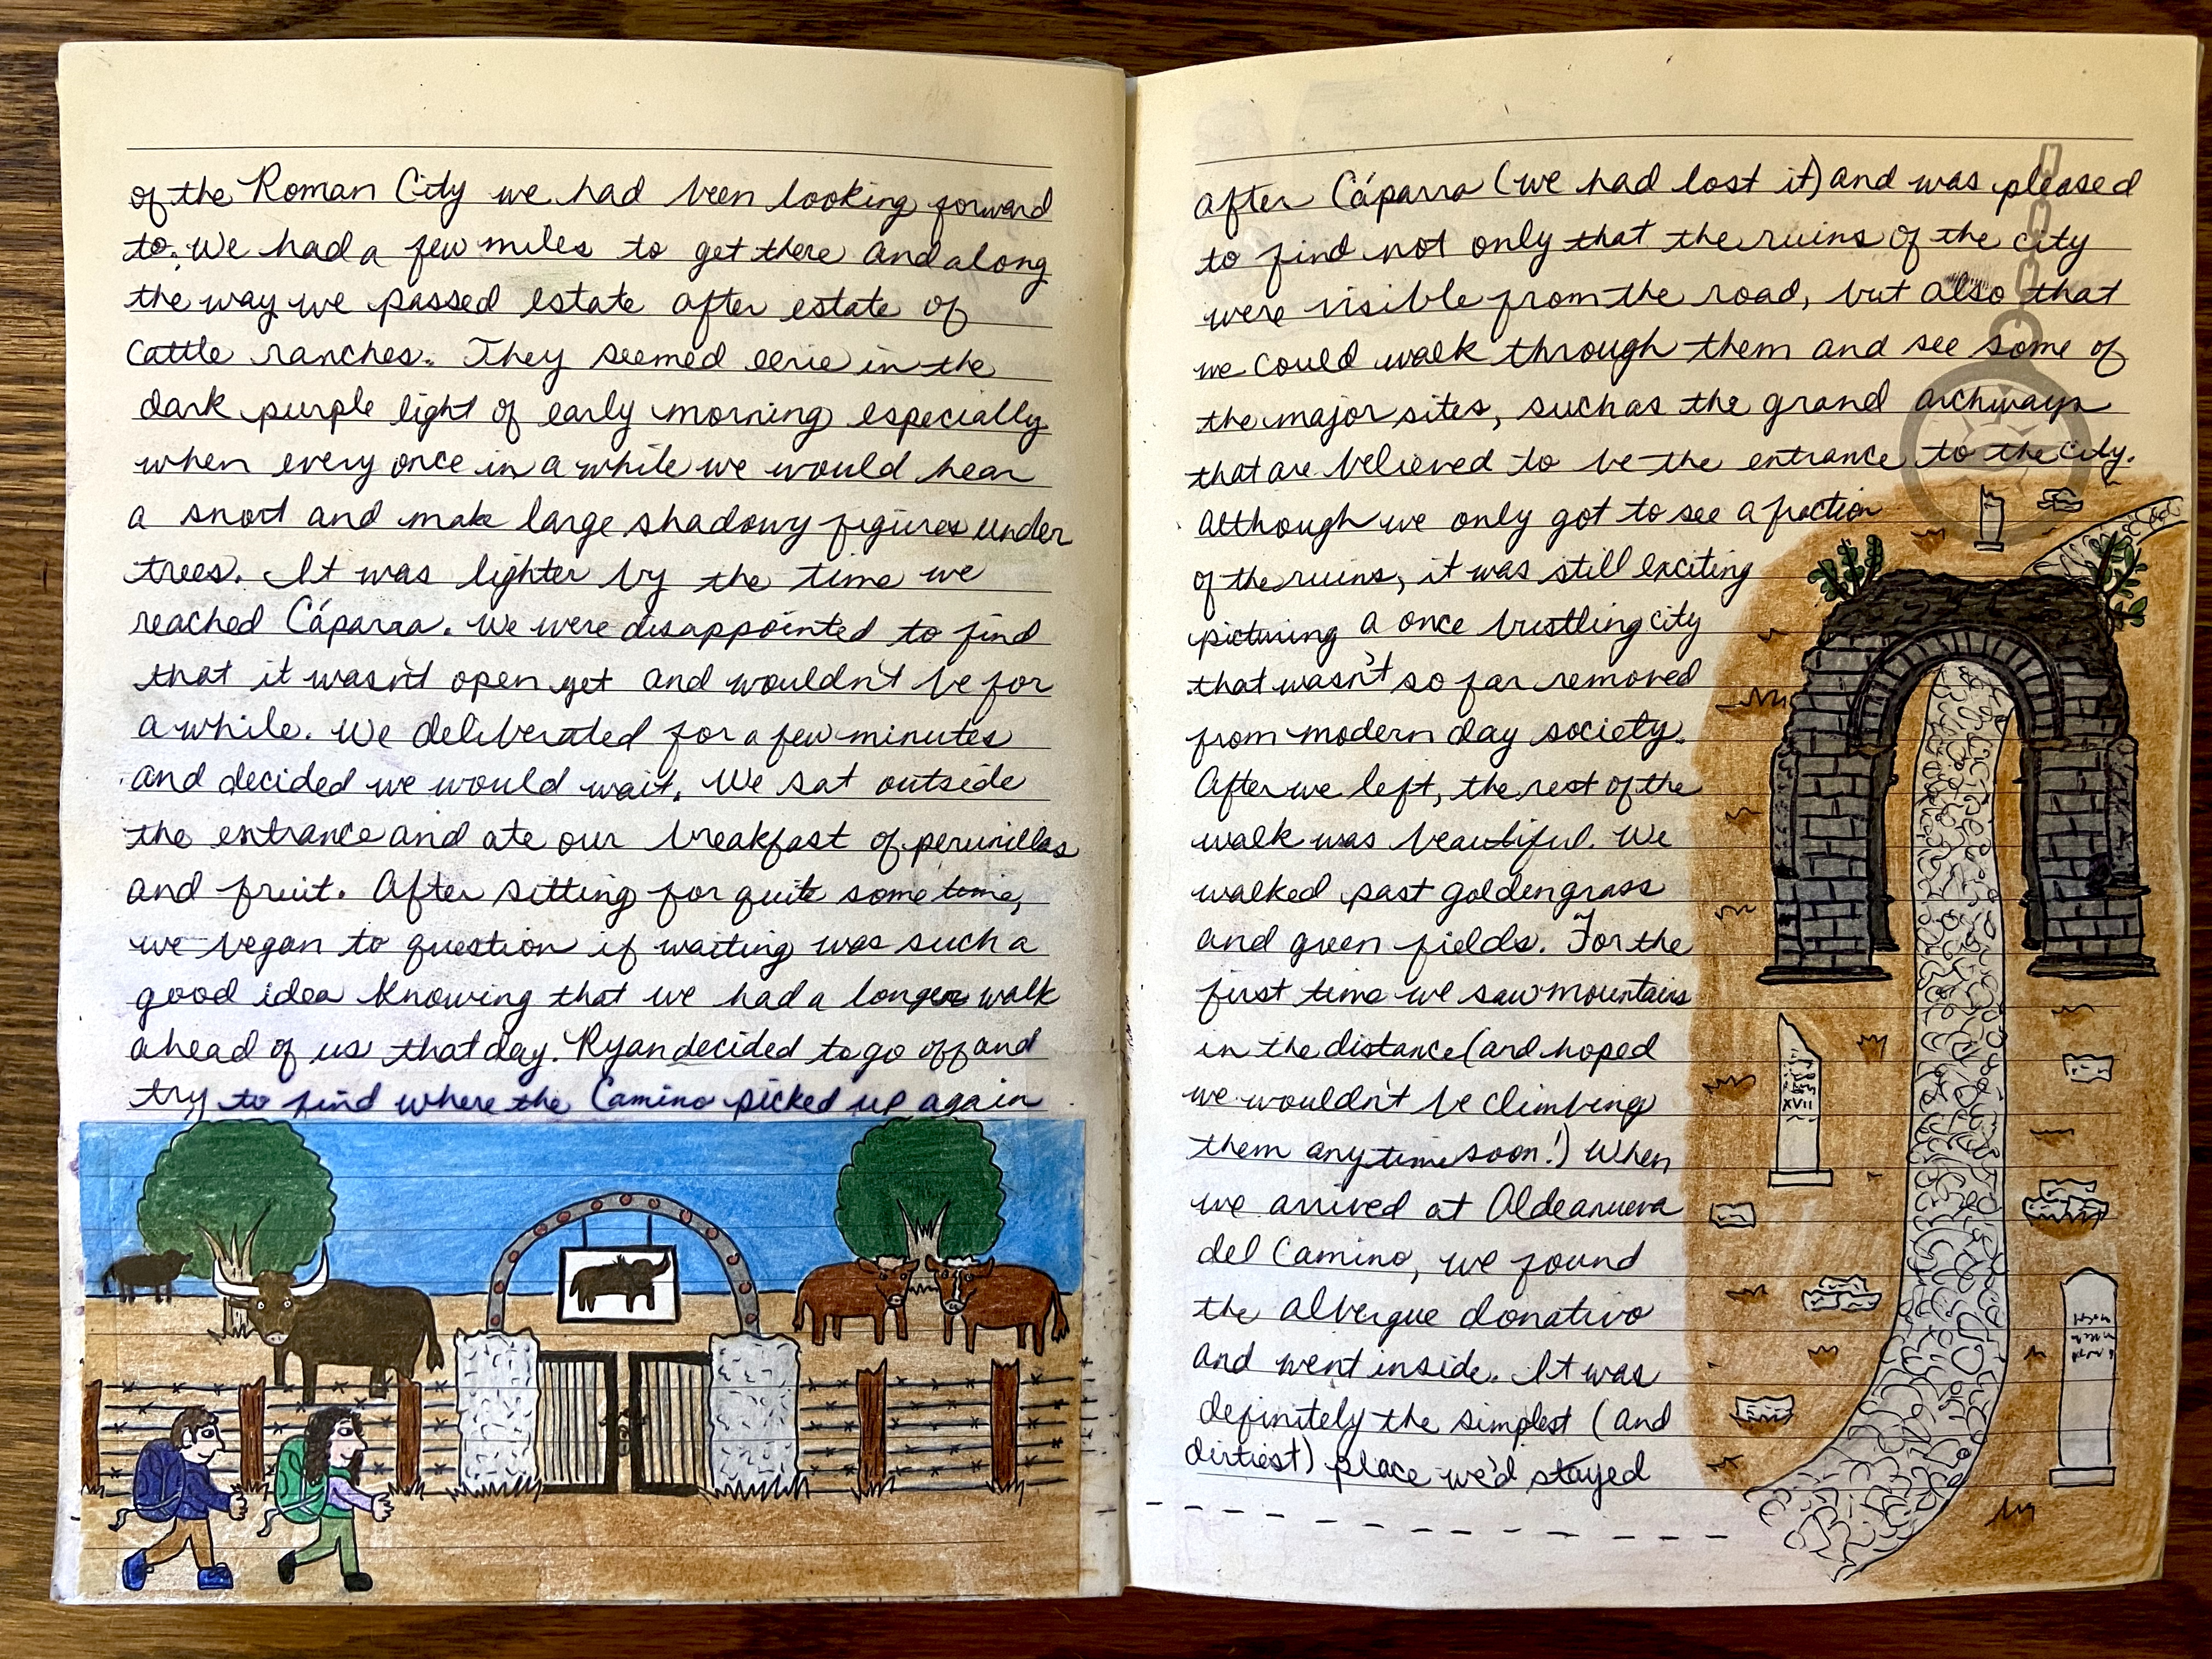 of the Roman City we had been looking forward
to. We had a few miles to get there and along
the way we passed estate after estate of
cattle ranches. They seemed eerie in the
dark purple light of early morning especially
when every once in a while we would hear
a snort and make large shadowy figures under
trees. It was lighter by the time we
reached Cáparra. We were disappointed to find
that it wasn't open yet and wouldn't be for
a while. We deliberated for a few minutes
and decided we would wait. We sat outside
the entrance and ate our breakfast of perunillas
and fruit. After sitting for quite some time,
we began to question if waiting was such a
good idea knowing that we had a longer walk
ahead of us that day. Ryan decided to go off and
try to find where the Camino picked up again
after Cáparra (we had lost it) and was pleased
to find not only that the ruins of the city
were visible from the road, but also that
we could walk through them and see some of
the major sites, such as the grand archways
that are believed to be the entrance to the city.
Although we only got to see a fraction
of the ruins, it was still exciting
picturing a once bustling city
that wasn't so far removed
from modern day society.
After we left, the rest of the
walk was beautiful. We
walked past golden grass
and green fields. For the
first time we saw mountains
in the distance (and hoped
we wouldn't be climbing
them anytime soon!) When
we arrived at Aldeanueva
del Camino, we found
the albergue donativo
and went inside. It was
definitely the simplest (and
dirtiest) place we'd stayed
XVII